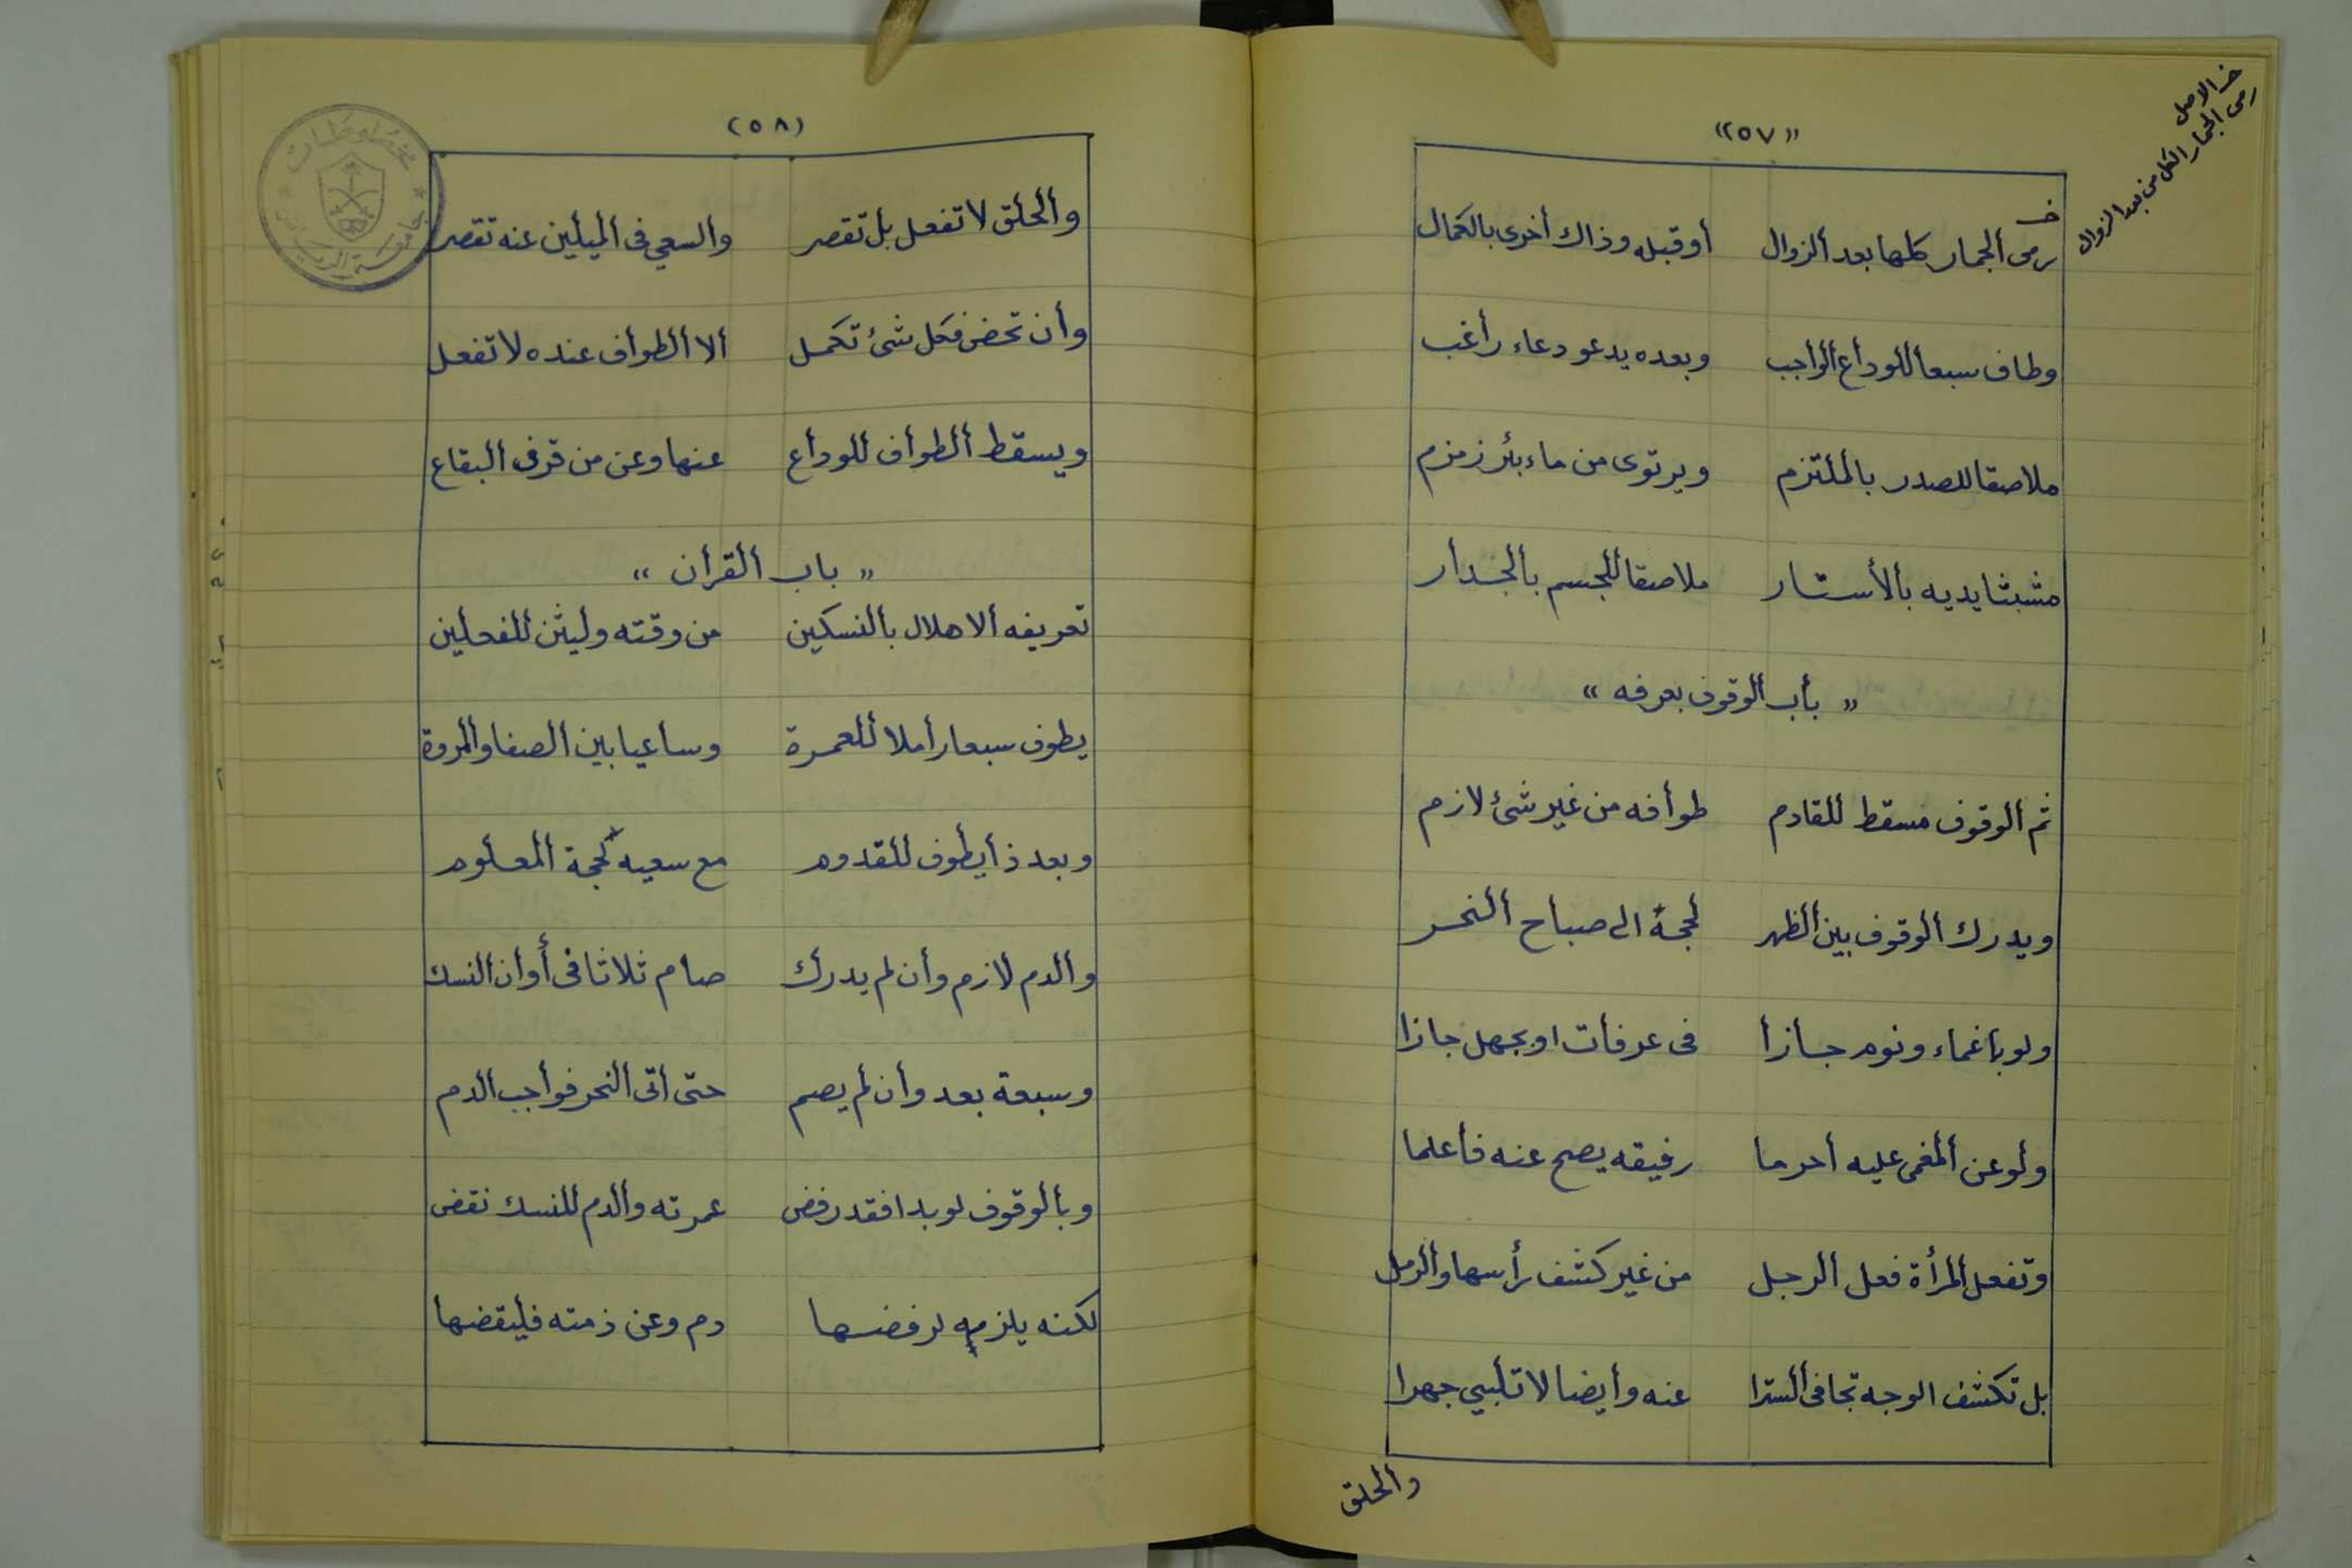 «٥٧»
خـ الاصل
رمى الجمار الكل من بعد الزوال
خـ
رمى الجمار كلها بعد الزوال أو قبله وذاك أخرى بالكمال
وطاف سبعا للوداع الواجب وبعده يدعو دعاء راغب
ملاصقا للصدر بالملتزم ويرتوى من ماء بئر زمزم
مشبثا يديه بالأستار ملاصقا للجسم بالجدار
« باب الوقوف بعرفه »
ثم الوقوف مسقط للقادم طوافه من غير شئ لازم
ويدرك الوقوف بين الظهر لحجة الى صباح النحر
ولو باغماء ونوم جازا فى عرفات او بجهل جازا
ولو عن المغمى عليه احرما رفيقه يصح عنه فاعلما
وتفعل المرأة فعل الرجل من غير كشف رأسها والرمل
بل تكشف الوجه تجافى السترا عنه وأيضا لا تلبي جهرا
والحلق
(٥٨)
والحلق لا تفعل بل تقصر والسعي فى الميلين عنه تقصر
وان تحض فكل شئ تكمل الا الطواف عنده لا تفعل
ويسقط الطواف للوداع عنها وعن من قرفى البقاع
« باب القران »
تعريفه الاهلال بالنسكين من وقته وليثن للفعلين
يطوف سبعا رأملا للعمرة وساعيا بين الصفا والمروة
وبعد ذا يطوف للقدوم مع سعيه لحجة المعلوم
والدم لازم وأن لم يدرك صام ثلاثا فى أوان النسك
وسبعة بعد وان لم يصم حتى اتى النحر فواجب الدم
وبالوقوف لو بدا فقد رفض عمرته والدم للنسك نقض
لكنه يلزمه لرفضها دم وعن ذمته فليقضها
مخطوطات
جامعة الرياض